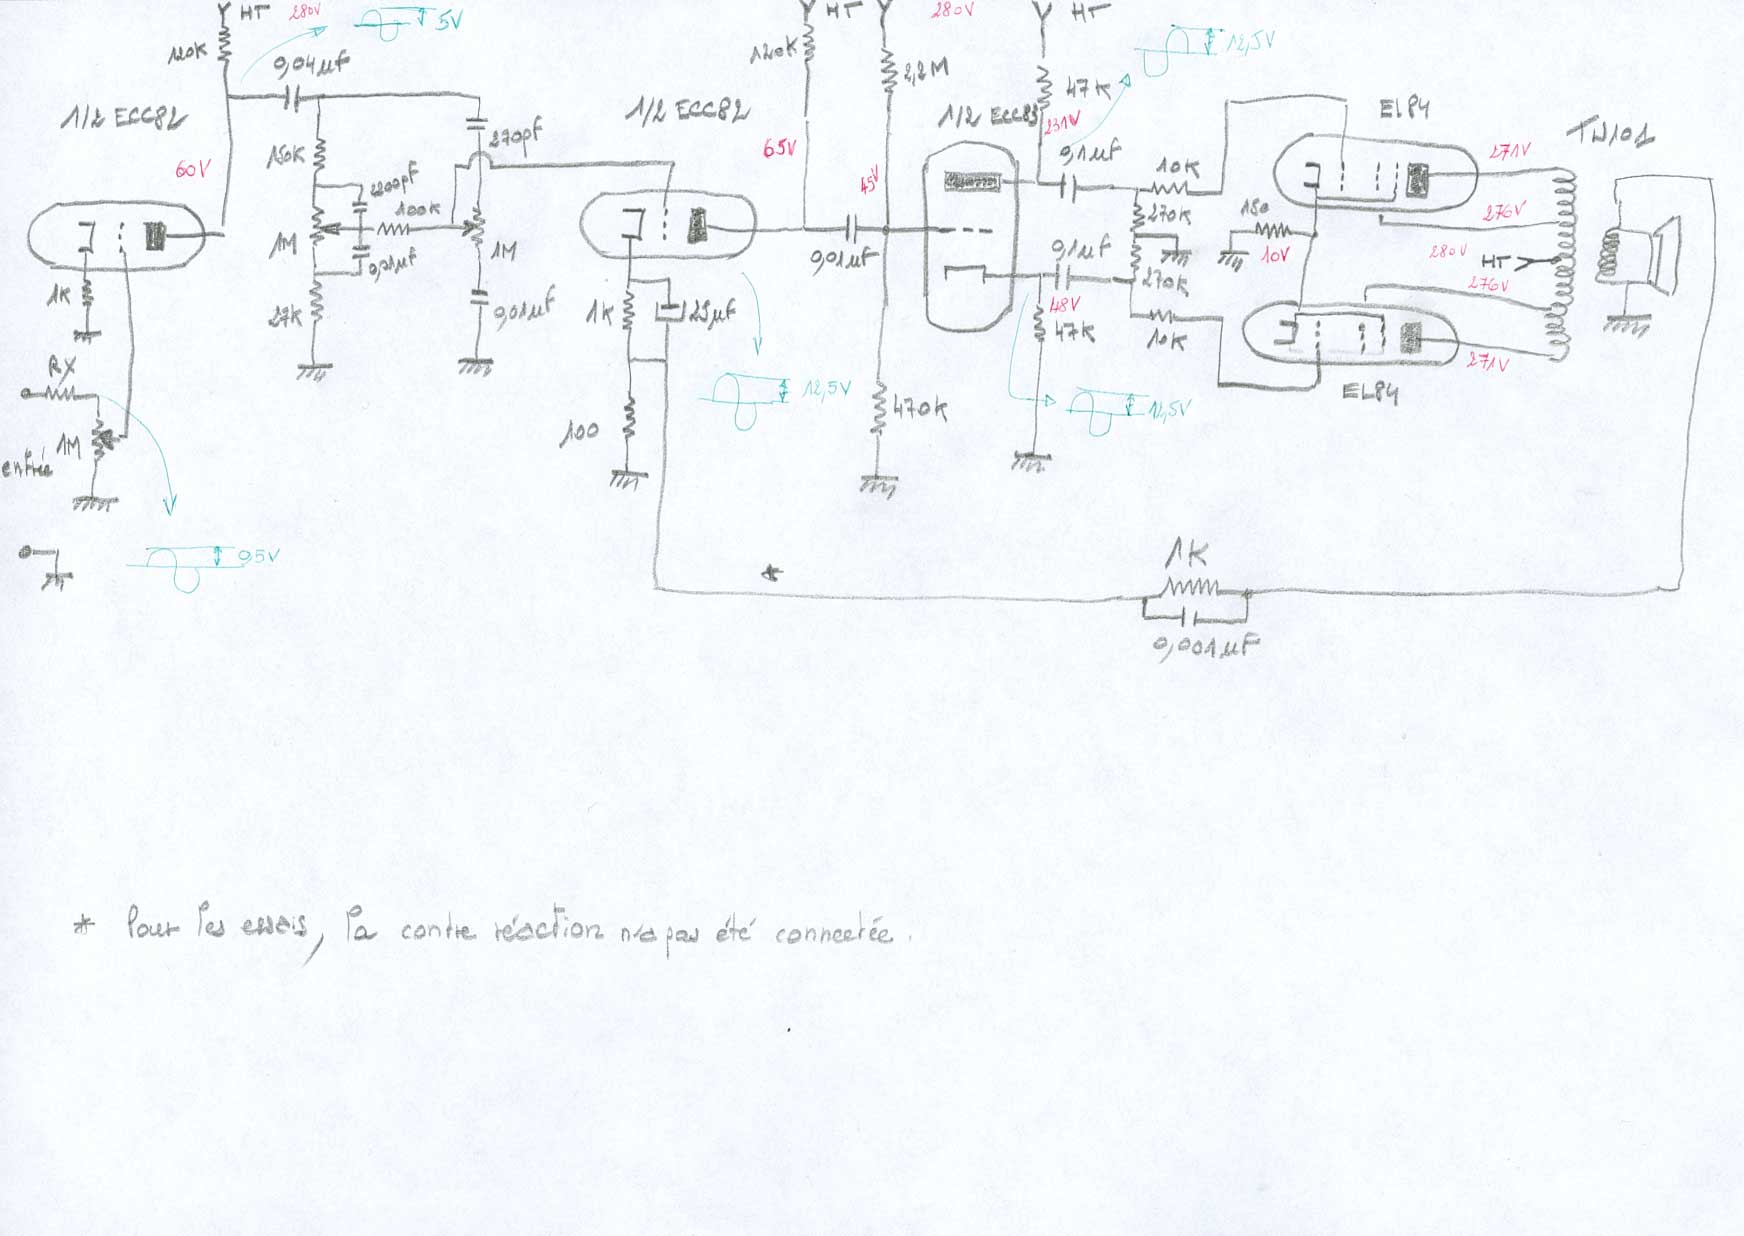 HT 280V
5V
HT
280V
HT
12,5V
120K
0,04µF
120K
2,2M
47K
1/2 ECC82
1/2 ECC82
1/2 ECC83
231V
EL84
TW101
270pF
65V
0,1µF
271V
150K
10K
60V
2200pF
45V
100K
270K
180
276V
1M
1M
0,1µF
280V
0,01µF
0,01µF
10V
HT
1K
270K
276V
27K
0,01µF
1K
25µF
48V
47K
10K
271V
RX
12,5V
12,5V
EL84
470K
1M
100
entrée
0,5V
1K
*
0,001µF
* Pour les essais, la contre réaction n'a pas été connectée.